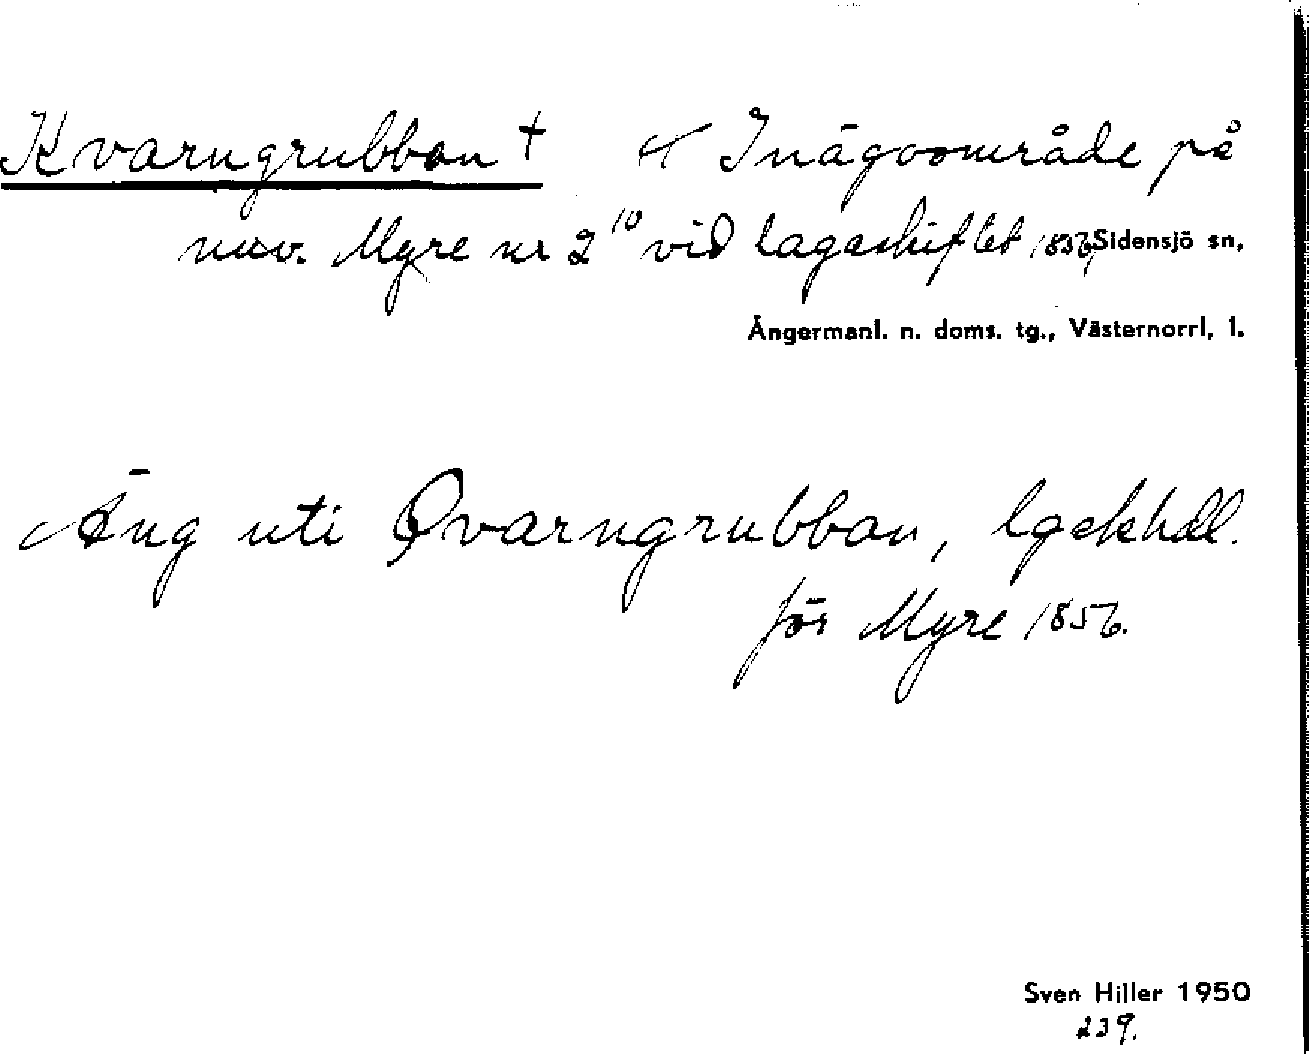 Kvarngrubban † Inägoområde på
nuv. Myre nr 2¹⁰ vid lagaskiftet 1856, Sidensjö sn,
Ångermanl. n. doms. tg., Västernorrl. l.
Äng uti Qvarngrubban, lgskhdl.
för Myre 1856.
Sven Hiller 1950
239.